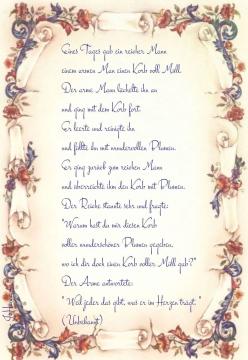 Eines Tages gab ein reicher Mann
einem armen Man einen Korb voll Müll.
Der arme Mann lächelte ihn an
und ging mit dem Korb fort.
Er leerte und reinigte ihn
und füllte ihn mit wundervollen Blumen.
Er ging zurück zum reichen Mann
und überreichte ihm den Korb mit Blumen.
Der Reiche staunte sehr und fragte:
"Warum hast du mir diesen Korb
voller wunderschöner Blumen gegeben,
wo ich dir doch einen Korb voller Müll gab?"
Der Arme antwortete:
" Weil jeder das gibt, was er im Herzen trägt. "
(Unbekannt)